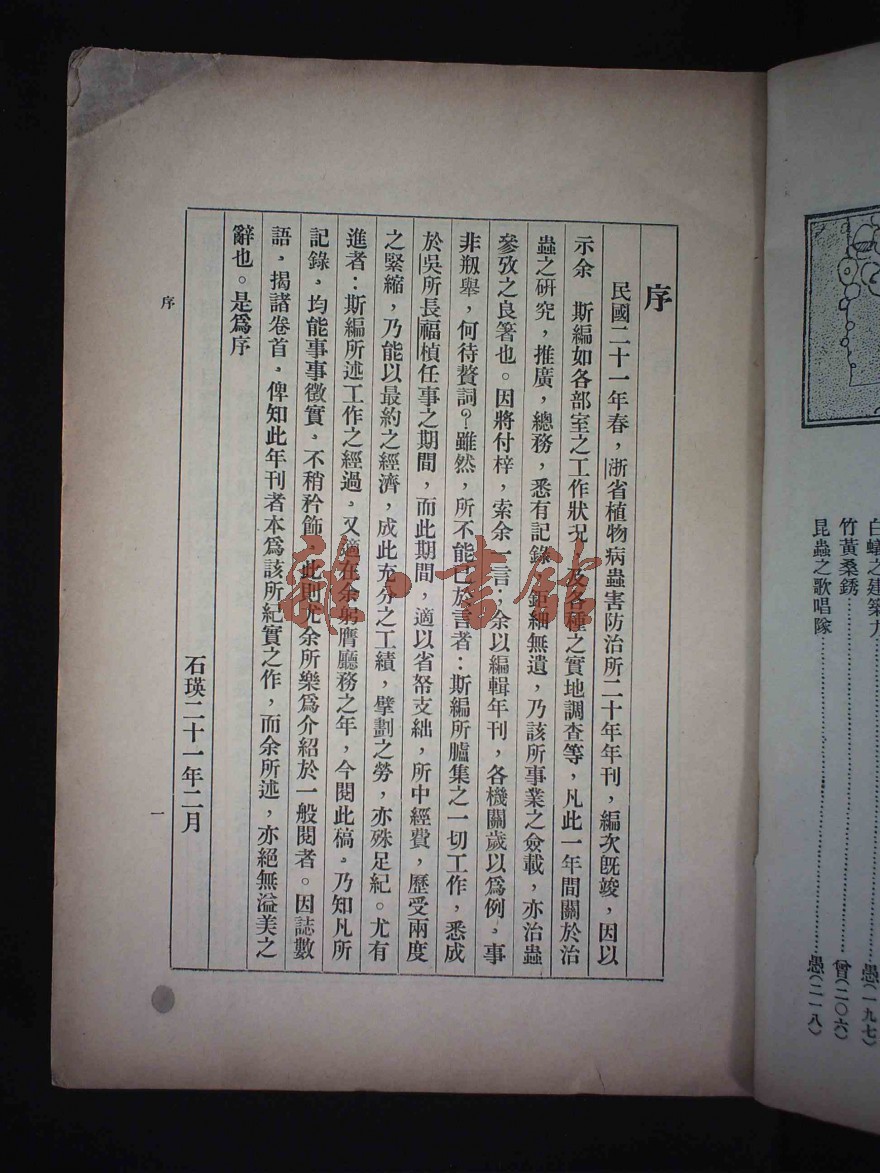 序
民國二十一年春，浙省植物病蟲害防治所二十年年刊，編次旣竣，因以
示余　斯編如各部室之工作狀況　及各種之實地調查等，凡此一年間關於治
蟲之研究，推廣，總務，悉有記錄，鉅細無遺，乃該所事業之僉載，亦治蟲
參攷之良箸也。因將付梓，索余一言；余以編輯年刊，各機關歲以爲例，事
非剏舉，何待贅詞？雖然，所不能已於言者：斯編所臚集之一切工作，悉成
於吳所長福楨任事之期間，而此期間，適以省帑支絀，所中經費，歷受兩度
之緊縮，乃能以最約之經濟，成此充分之工績，擘劃之勞，亦殊足紀。尤有
進者：斯編所述工作之經過，又適在余躬膺廳務之年，今閱此稿。乃知凡所
記錄，均能事事徵實，不稍矜飾，此則尤余所樂爲介紹於一般閱者。因誌數
語，揭諸卷首，俾知此年刊者本爲該所紀實之作，而余所述，亦絕無溢美之
辭也。是爲序
石瑛二十一年二月
序
一
白蟻之建築力…………愚(一九七)
竹黃桑銹…………曾(二〇六)
昆蟲之歌唱隊…………愚(二一八)
龍書館